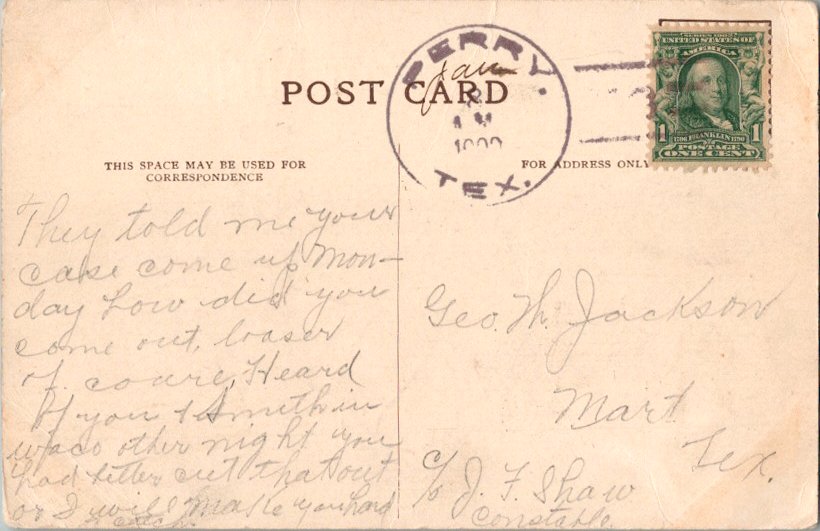 PERRY.
Jan
2
A M
1909
TEX.
POST CARD
SERIES 1902
UNITED STATES OF
AMERICA
1706 FRANKLIN 1790
1 1
POSTAGE
ONE CENT
THIS SPACE MAY BE USED FOR
CORRESPONDENCE
FOR ADDRESS ONLY
They told me your
case come up Mon-
day how did you
come out, looser
of coure, Heard
of you & Smith in
waco other night you
had better cut that out
or I will make you hard
to catch.
Geo. W. Jackson
Mart
Tex.
c/o J. F. Shaw
Constable.